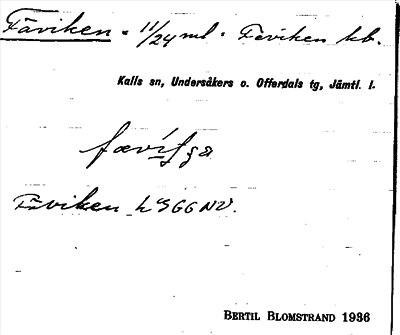 Fäviken - 11/24 ml. Fäviken kb.
Kalls sn, Undersåkers o. Offerdals tg, Jämtl. l.
Fäviken
BERTIL BLOMSTRAND 1936